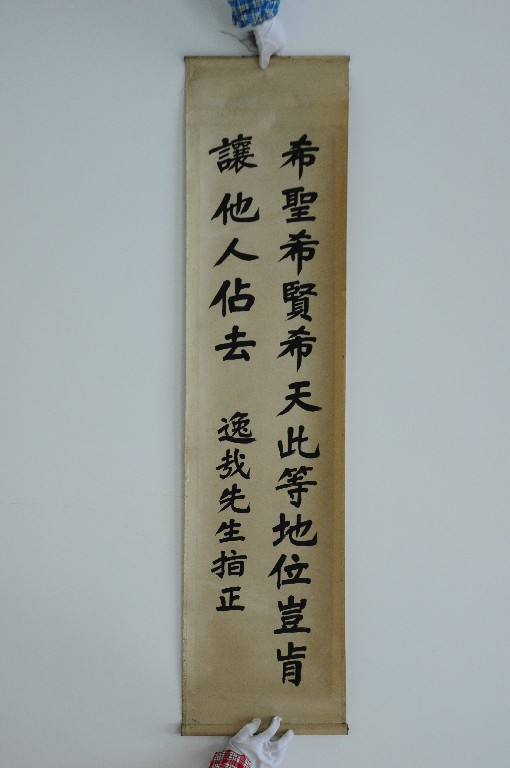 希聖希賢希天此等地位豈肯
讓他人佔去 逸哉先生指正